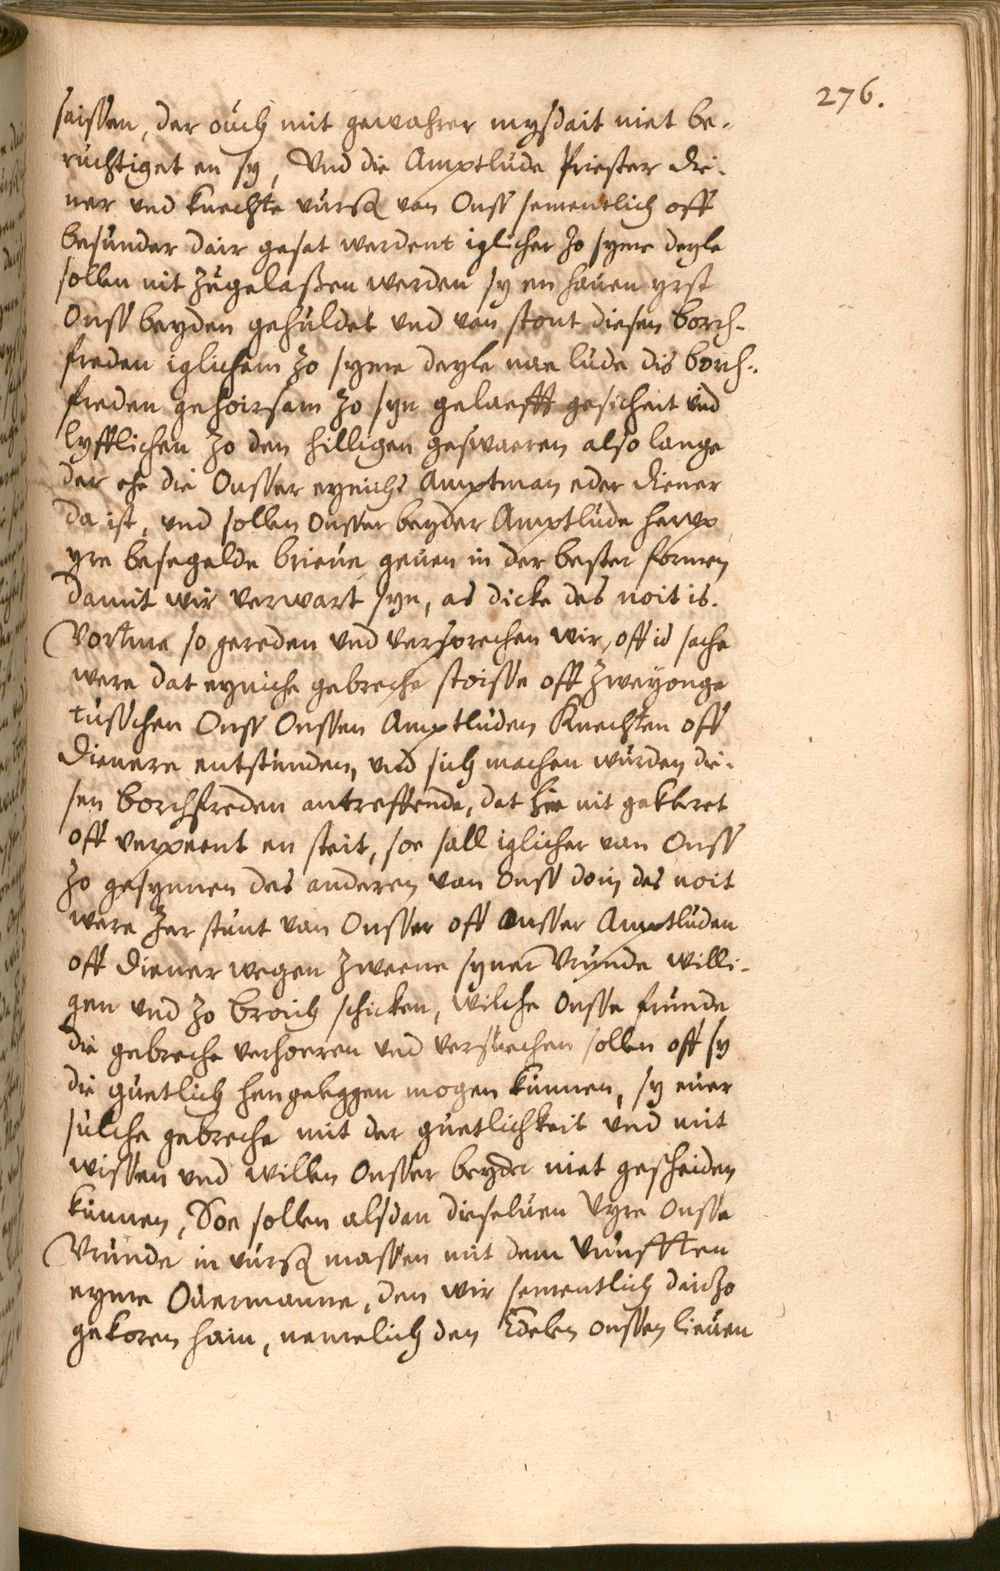 276.
saissen, der oüch mit gewahrer mysdait niet be-
rüchtiget en sy, Und die Amptlüde Priester die-
ner und knechte vürs. van Onss sementlich off
besünder dair gesat werdent iglicher zo syme deyle
sollen nit zügelaßen werden sy en haüen yrst
Onss beyden gehüldet und van stont diesen borch-
freden iglichem zo syme deyle nae lüde dis borch-
freden gehoirsam zo syn gelaefft gesichert und
lyfflichen zo den hilligen geswaeren also lange
der ehe die Onsser eynichs Amptman eder diener
da ist, und sollen Onsser beyder Amptlüde herup
yre besegelde brieüe geüen in der bester formen
damit wir verwart syn, as dicke des noit is.
Vortme so gereden und versprechen wir, off id sache
were dat eyniche gebreche stoisse off zweyonge
tüsschen Onss Onssen Amptlüden Knechten off
dienere entstünden, und sich machen würden die-
sen borchfreden antreffende, dat hie nit gekleret
off verpeent en steit, soe sall iglicher van Onss
zo gesynnen des anderen van Onss dem des noit
were zer stünt van Onsser off Onsser Amptlüden
off diener wegen zweene syner Vründe willi-
gen und zo broich schicken, wilche Onsse fründe
die gebreche verhoeren und versüechen sollen off sy
die güetlich hengeleggen mogen künnen, sy eüer
sülche gebreche mit der güetlichkeit und mit
wissen und willen Onsser beyder niet gescheiden
künnen, Soe sollen alsdan dieselüen Vyre Onsse
Vründe in vürs. massen mit dem Vünfften
eyme Oüermanne, den wir sementlich dairzo
gekoren hain, nemelich den Edelen onssen lieüen